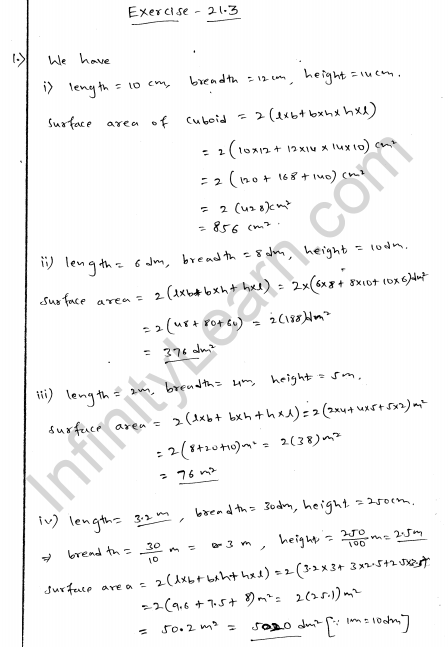 Exercise - 21.3
1.) We have
i) length = 10 cm, breadth = 12 cm, height = 14 cm.
surface area of cuboid = 2(l×b + b×h × h×l)
= 2(10×12 + 12×14 × 14×10) cm²
= 2(120 + 168 + 140) cm²
= 2(428) cm²
= 856 cm².
ii) length = 6 dm, breadth = 8 dm, height = 10 dm.
surface area = 2(l×b + b×h + h×l) = 2×(6×8 + 8×10 + 10×6) dm²
= 2(48 + 80 + 60) = 2(188) dm²
= 376 dm²
iii) length = 2m, breadth = 4m, height = 5m.
surface area = 2(l×b + b×h + h×l) = 2(2×4 + 4×5 + 5×2) m²
= 2(8+20+10) m² = 2(38) m²
= 76 m²
iv) length = 3.2 m, breadth = 30dm, height = 250cm.
⇒ breadth = 30/10 m = 3 m, height = 250/100 m = 2.5m
surface area = 2(l×b + b×h + h×l) = 2(3.2×3 + 3×2.5 + 2.5×
= 2(9.6 + 7.5 + 8) m² = 2(25.1) m²
= 50.2 m² = 5020 dm² [∵ 1m = 10dm]
InfinityLearn.com